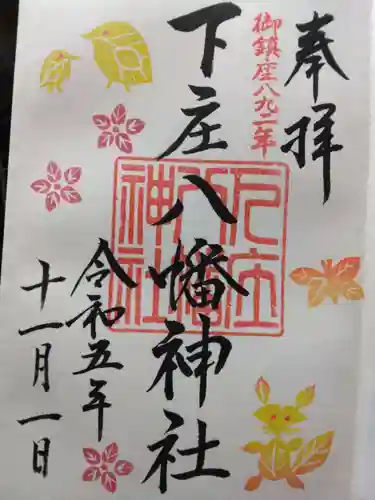 奉拝
御鎮座八九二年
下庄八幡神社
下庄八幡神社
令和五年
十一月一日